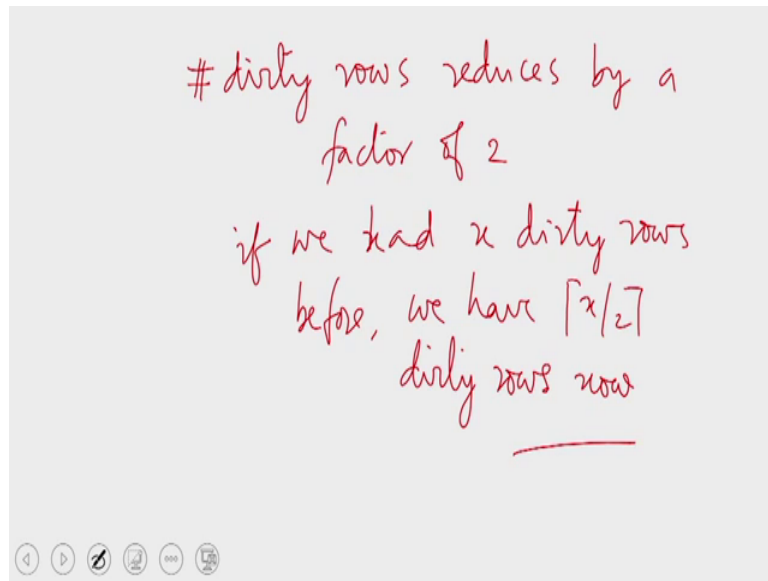 # dirty rows reduces by a
factor of 2
if we had x dirty rows
before, we have ⌈x/2⌉
dirty rows now